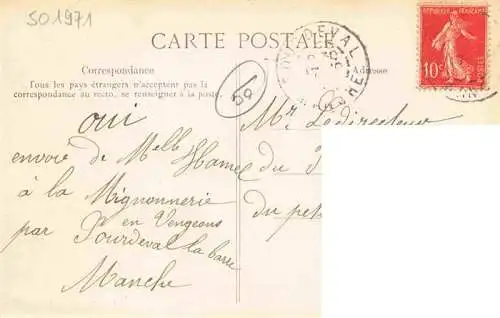 SO1971
CARTE POSTALE
Correspondance
Adresse
Tous les pays étrangers n'acceptent pas la
correspondance au recto, se renseigner à la poste.
RÉPUBLIQUE FRANÇAISE
10c
POSTES
SOURDEVAL
50
oui
envoie de Melle Hamel
à la Mignonnerie
en Vengeons
par Sourdeval la barre
Manche
Mr Le directeur
du
du pet